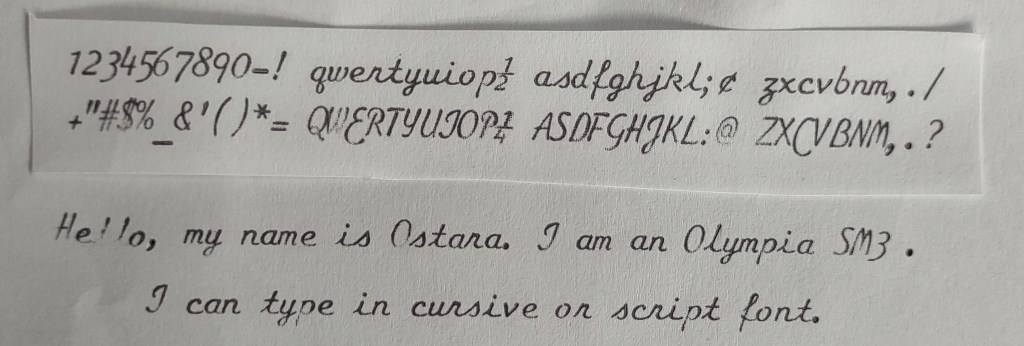 1234567890-! qwertyuiop½ asdfghjkl;¢ zxcvbnm,./
+"#$%_&'()*= QWERTYUIOP¼ ASDFGHJKL:@ ZXCVBNM,.?
Hello, my name is Ostara. I am an Olympia SM3 .
I can type in cursive or script font.